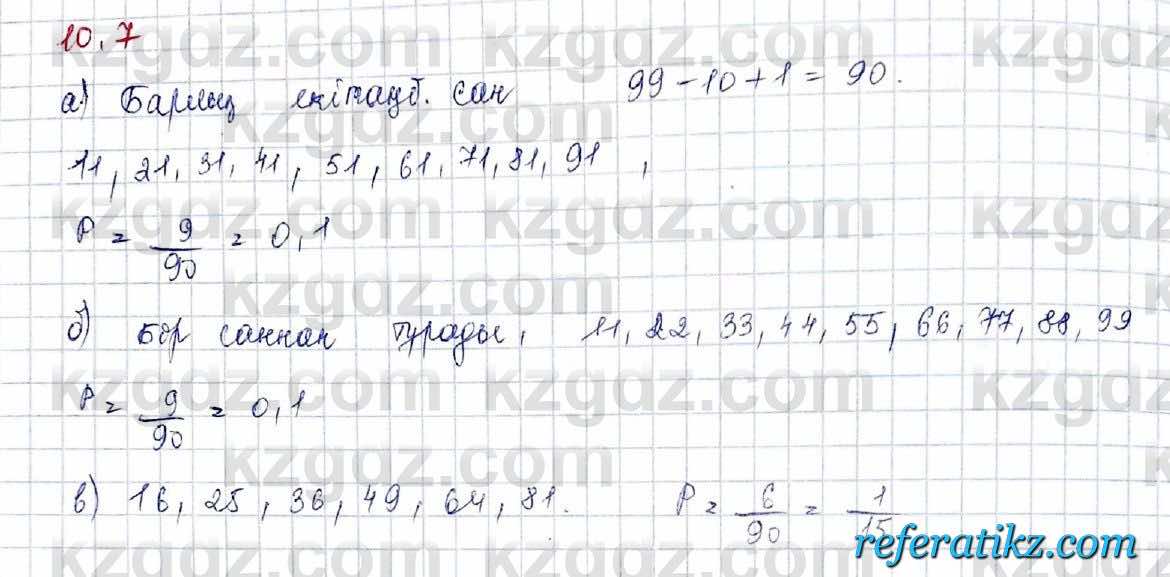 10.7
а) Барлық екітаңб. сан 99 - 10 + 1 = 90.
11, 21, 31, 41, 51, 61, 71, 81, 91,
P = 9/90 = 0,1
б) Бір саннан тұрады, 11, 22, 33, 44, 55, 66, 77, 88, 99
P = 9/90 = 0,1
в) 16, 25, 36, 49, 64, 81. P = 6/90 = 1/15
kzgdz.com
referatikz.com